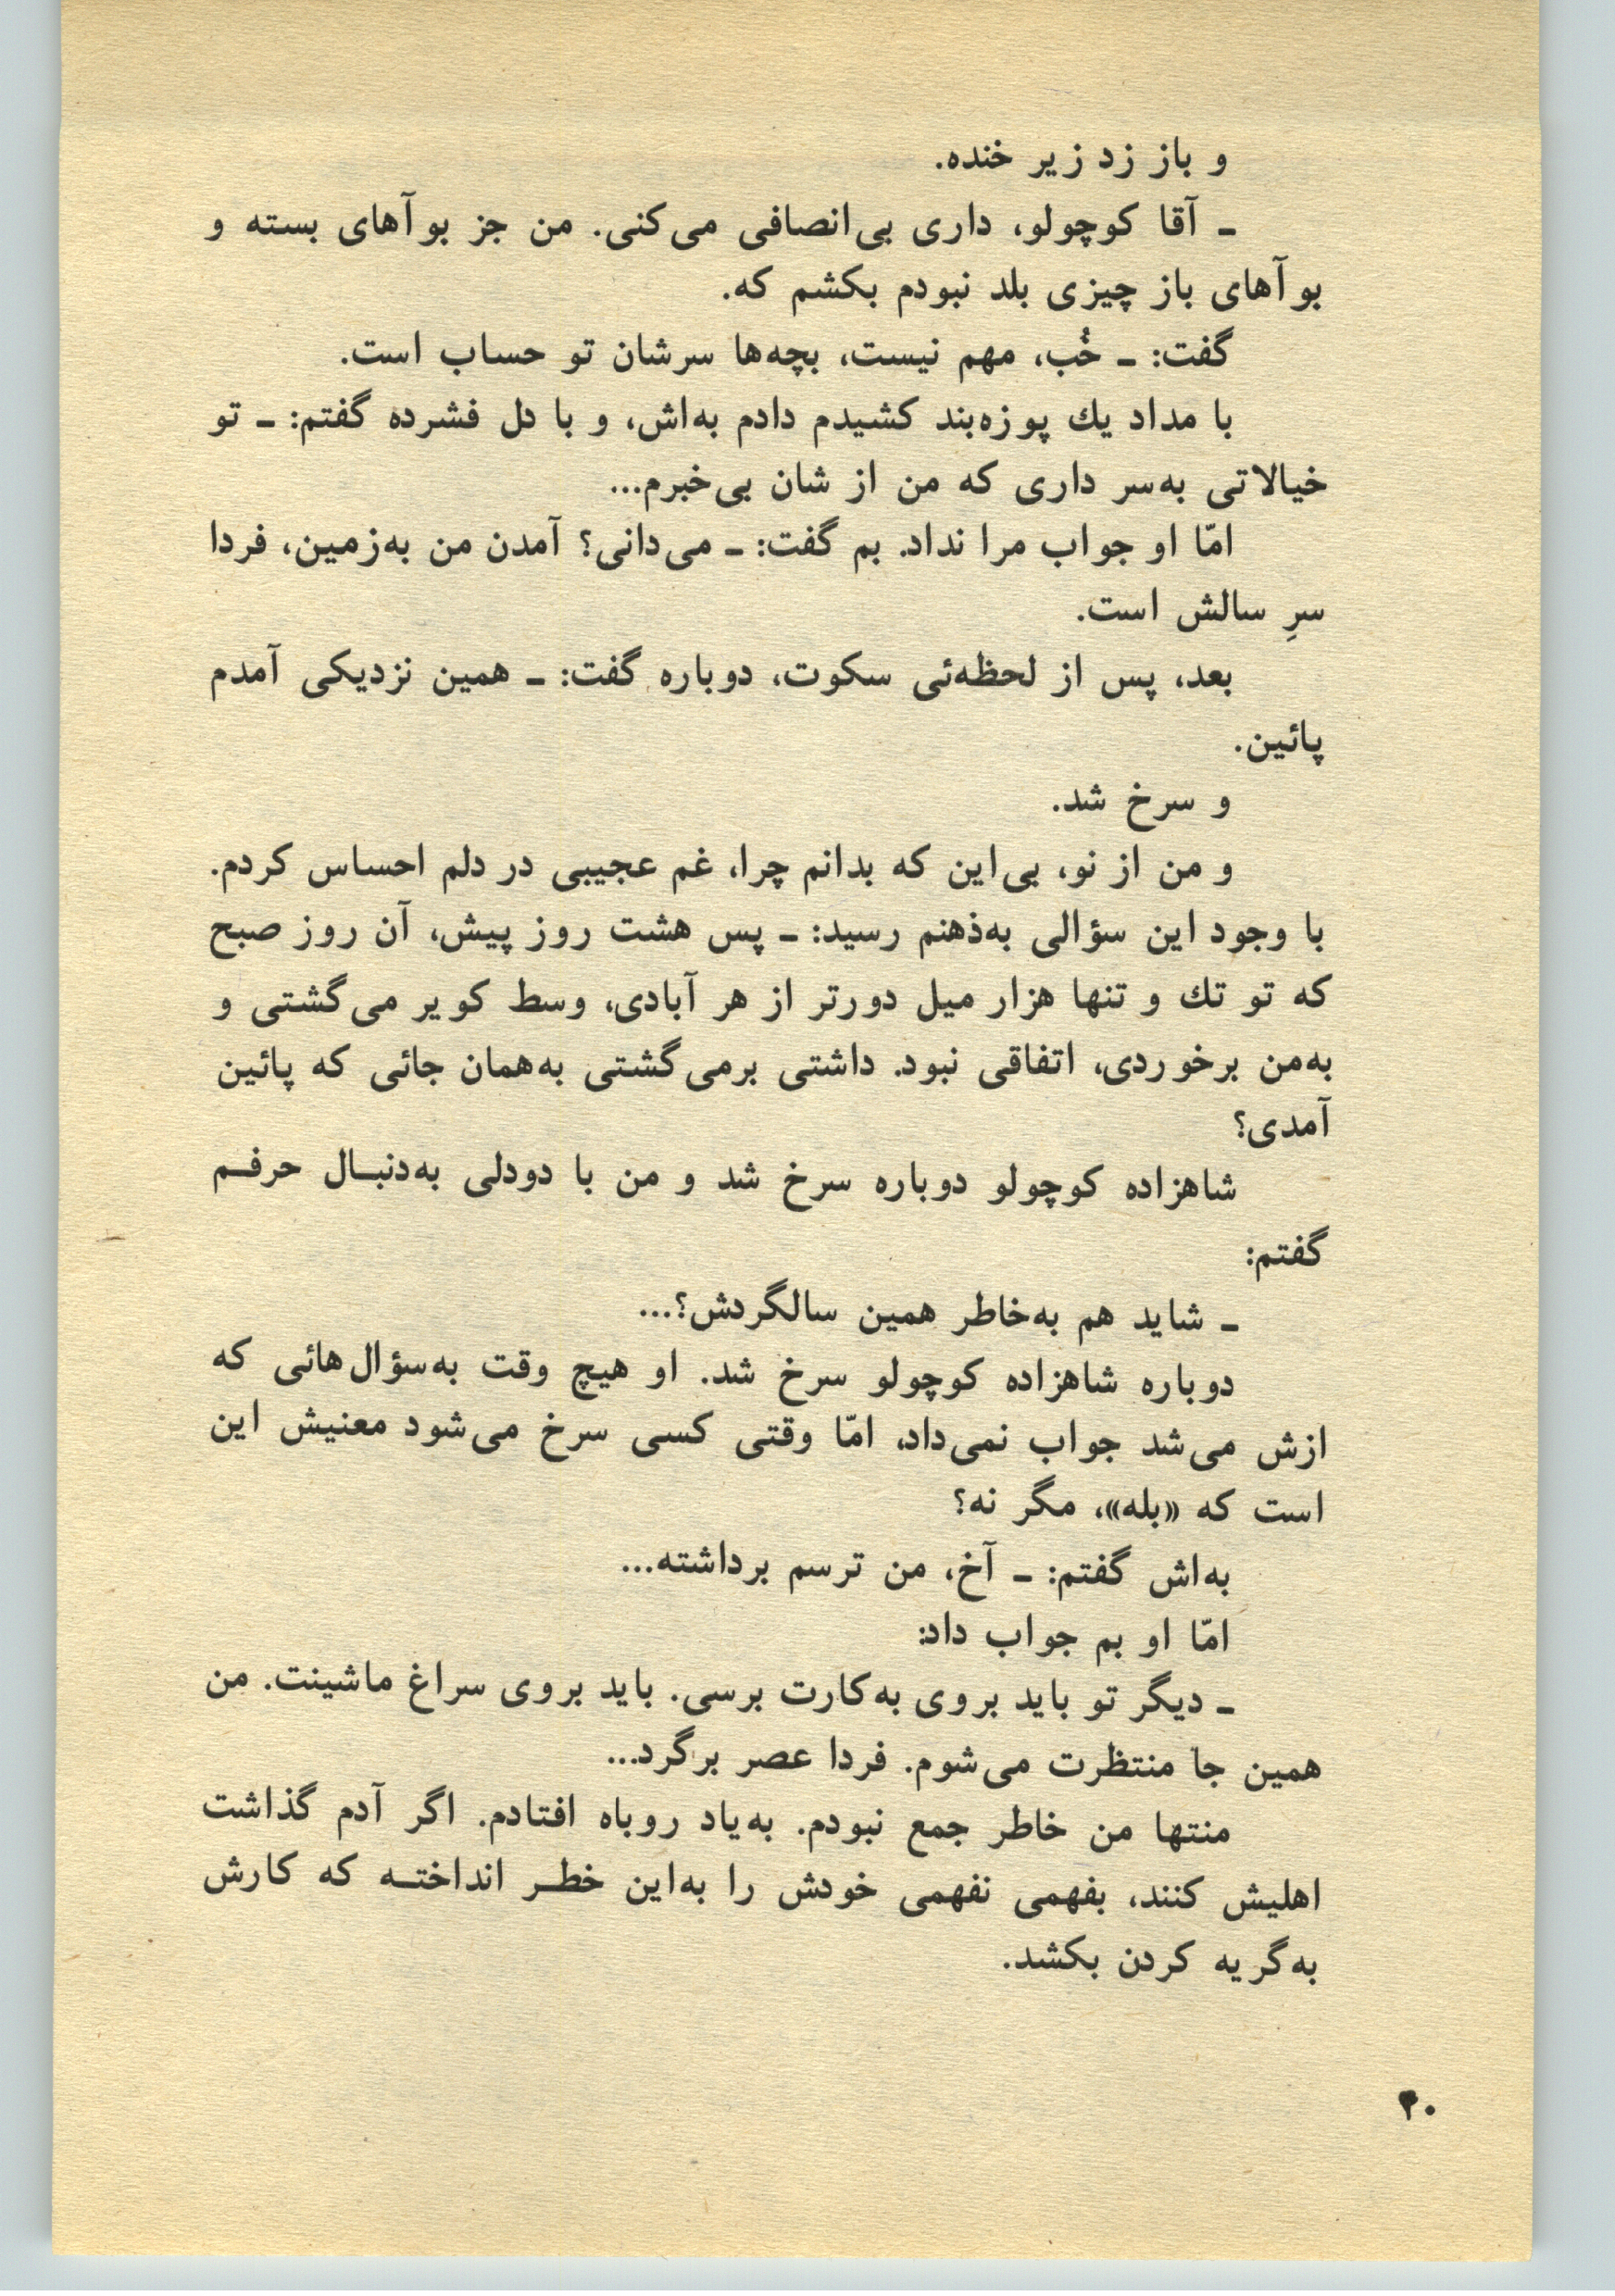 و باز زد زیر خنده.
ـ آقا کوچولو، داری بی‌انصافی می‌کنی. من جز بوآهای بسته و
بوآهای باز چیزی بلد نبودم بکشم که.
گفت: ـ خُب، مهم نیست، بچه‌ها سرشان تو حساب است.
با مداد یك پوزه‌بند کشیدم دادم به‌اش، و با دل فشرده گفتم: ـ تو
خیالاتی به‌سر داری که من از شان بی‌خبرم...
امّا او جواب مرا نداد. بم گفت: ـ می‌دانی؟ آمدن من به‌زمین، فردا
سرِ سالش است.
بعد، پس از لحظه‌ئی سکوت، دوباره گفت: ـ همین نزدیکی آمدم
پائین.
و سرخ شد.
و من از نو، بی‌این که بدانم چرا، غم عجیبی در دلم احساس کردم.
با وجود این سؤالی به‌ذهنم رسید: ـ پس هشت روز پیش، آن روز صبح
که تو تك و تنها هزار میل دورتر از هر آبادی، وسط کویر می‌گشتی و
به‌من برخوردی، اتفاقی نبود. داشتی برمی‌گشتی به‌همان جائی که پائین
آمدی؟
شاهزاده کوچولو دوباره سرخ شد و من با دودلی به‌دنبـال حرفـم
گفتم:
ـ شاید هم به‌خاطر همین سالگردش؟...
دوباره شاهزاده کوچولو سرخ شد. او هیچ وقت به‌سؤال‌هائی که
ازش می‌شد جواب نمی‌داد، امّا وقتی کسی سرخ می‌شود معنیش این
است که «بله»، مگر نه؟
به‌اش گفتم: ـ آخ، من ترسم برداشته...
امّا او بم جواب داد:
ـ دیگر تو باید بروی به‌کارت برسی. باید بروی سراغ ماشینت. من
همین جا منتظرت می‌شوم. فردا عصر برگرد...
منتها من خاطر جمع نبودم. به‌یاد روباه افتادم. اگر آدم گذاشت
اهلیش کنند، بفهمی نفهمی خودش را به‌این خطـر انداختـه که کارش
به‌گریه کردن بکشد.